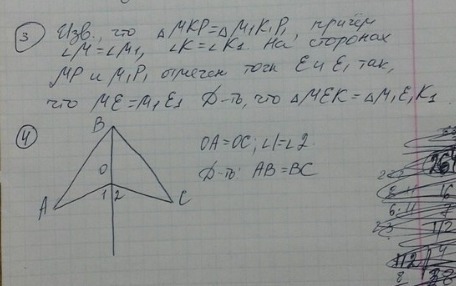 3 Изв., что △MKP=△M₁K₁P₁, причём
∠M=∠M₁, ∠K=∠K₁. На сторонах
MP и M₁P₁ отмечен точк E и E₁ так,
что ME=M₁E₁ Д-ть, что △MEK=△M₁E₁K₁.
4
B
OA=OC; ∠1=∠2
Д-ть: AB=BC
O
1 2
A
C